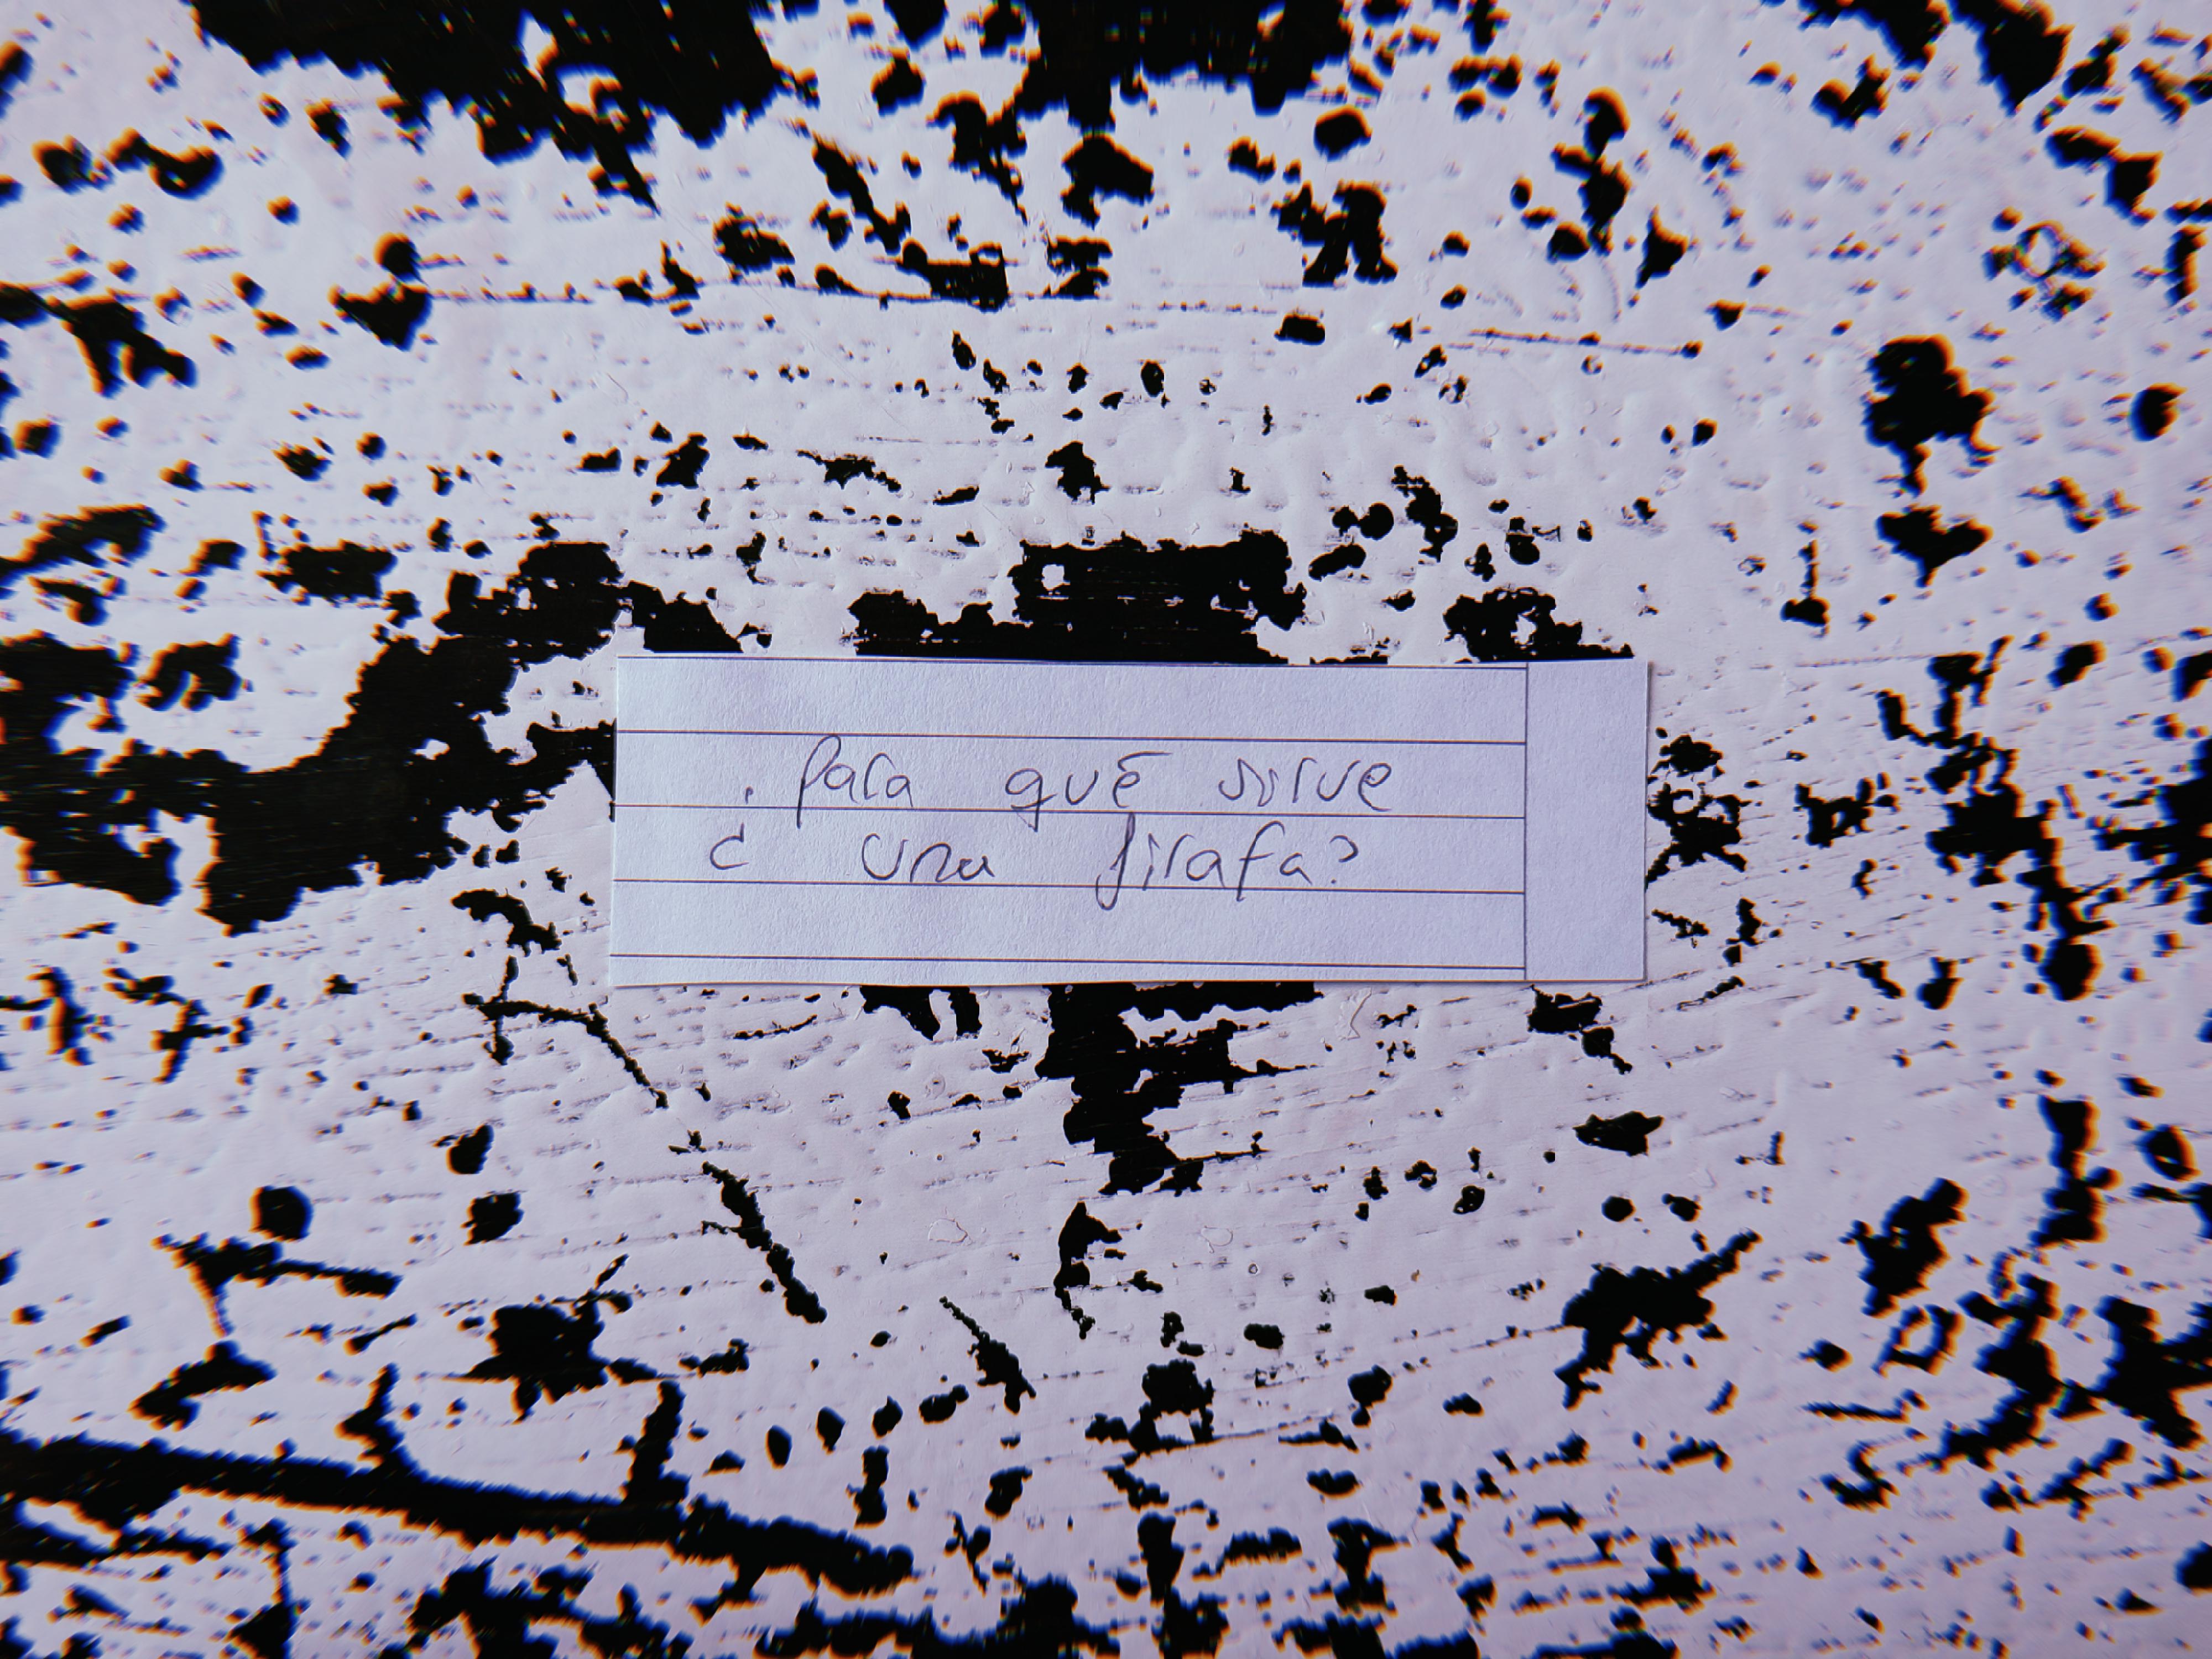 ¿Para qué sirve
una jirafa?